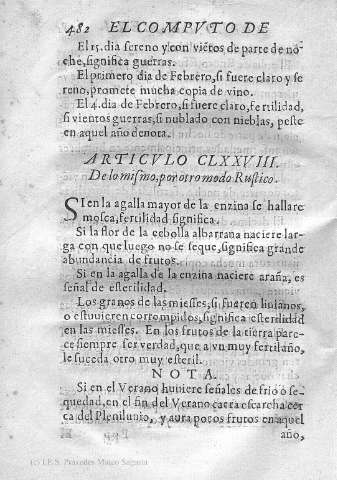 482 EL COMPVTO DE
El 15. dia sereno y con viẽtos de parte de no-
che, significa guerras.
El primero dia de Febrero, si fuere claro y se
reno, promete mucha copia de vino.
El 4. dia de Febrero, si fuere claro, fertilidad,
si vientos guerras, si nublado con nieblas, peste
en aquel año denota.
ARTICVLO CLXXVIII.
De lo mismo, por otro modo Rustico.
SI en la agalla mayor de la enzina se hallare
mosca, fertilidad significa.
Si la flor de la cebolla albarrana naciere lar-
ga con que luego no se seque, significa grande
abundancia de frutos.
Si en la agalla de la enzina naciere araña, es
señal de esterilidad.
Los granos de las miesses, si fueren liuianos,
o estuuieren corrompidos, significa esterilidad
en las miesses. En los frutos de la tierra pare-
ce siempre ser verdad, que a vn muy fertil año,
le suceda otro muy esteril.
NOTA.
Si en el Verano huuiere señales de frio o se-
quedad, en el fin del Verano caera escarcha cer
ca del Plenilunio, y aura pocos frutos en aquel
año,
(c) I.E.S. Práxedes Mateo Sagasta